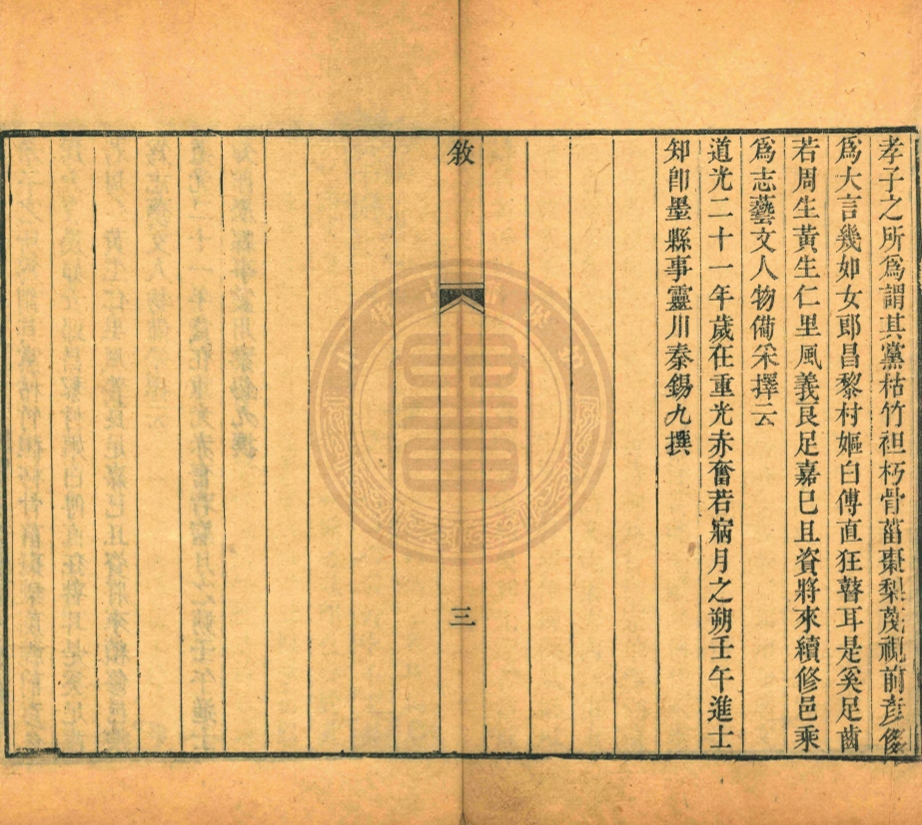 孝子之所爲謂其黨枯竹袒朽骨菑棗梨蔑視前彥侈
爲大言幾如女郎昌黎村嫗白傅直狂瞽耳是奚足齒
若周生黃生仁里風義良足嘉已且資將來續修邑乘
爲志藝文人物備采擇云
道光二十一年歲在重光赤奮若寎月之朔壬午進士
知卽墨縣事靈川秦錫九撰
敘
三